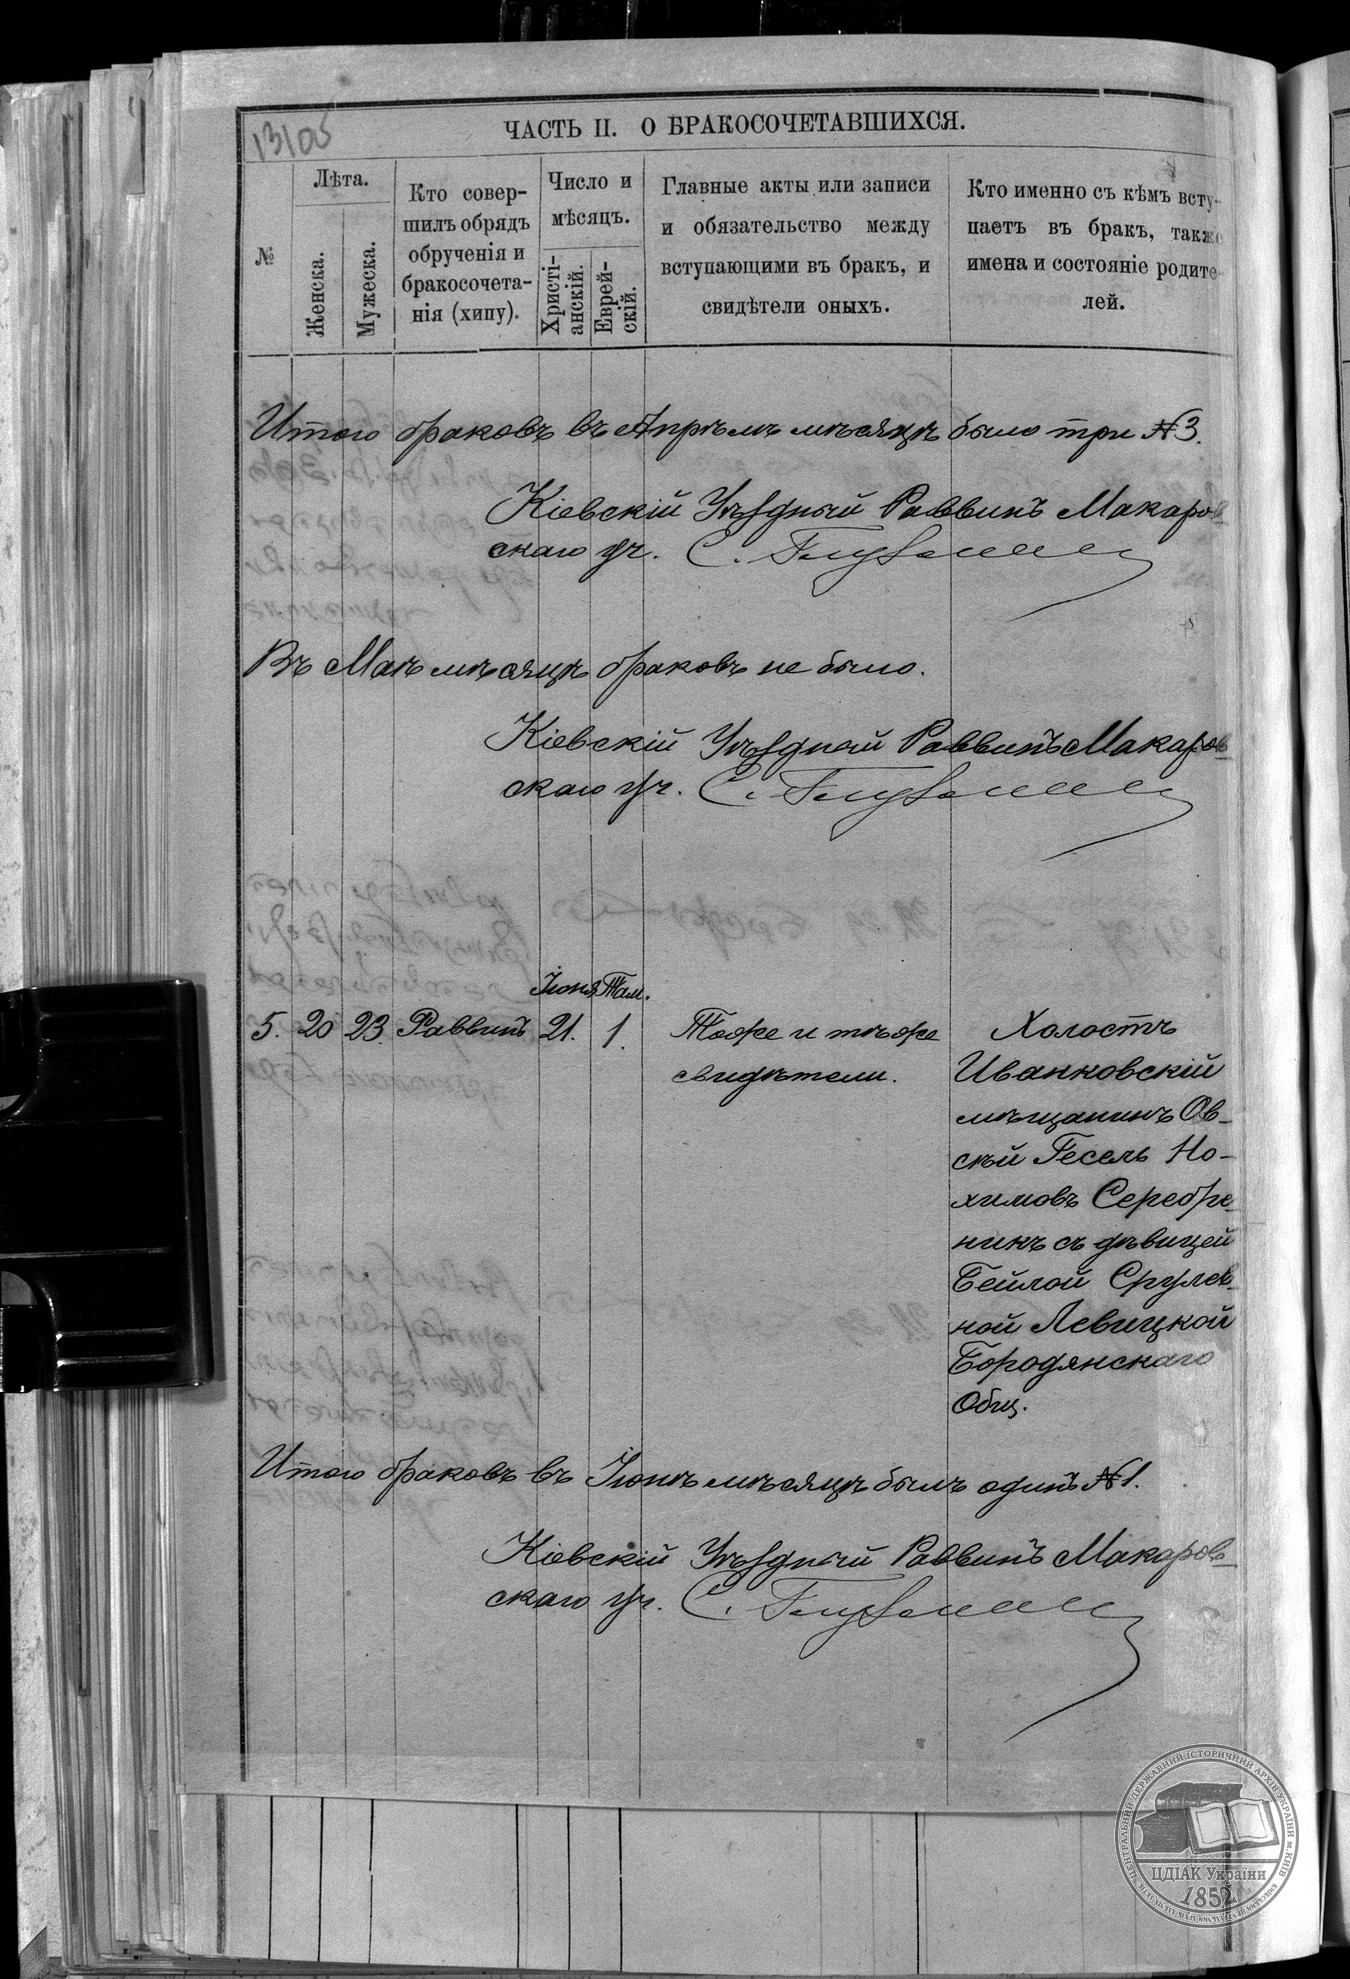 13/05
ЧАСТЬ II. О БРАКОСОЧЕТАВШИХСЯ.
№
Лѣта.
Женска.
Мужеска.
Кто совер-
шилъ обрядъ
обрученія и
бракосочета-
нія (хипу).
Число и
мѣсяцъ.
Христі-
анскій.
Еврей-
скій.
Главные акты или записи
и обязательство между
вступающими въ бракъ, и
свидѣтели оныхъ.
Кто именно съ кѣмъ всту-
паетъ въ бракъ, также
имена и состояніе родите-
лей.
Итого браковъ въ Апрѣлѣ мѣсяцѣ было три №3.
Кіевскій Уѣздный Раввинъ Макаров-
скаго уч.
Въ Маѣ мѣсяцѣ браковъ не было.
Кіевскій Уѣздный Раввинъ Макаров-
скаго уч.
Іюня Там.
5. 20 23. Раввинъ 21. 1. Тоже и тѣже Холостъ
свидѣтели. Иванковскій
мѣщанинъ Ов-
сѣй Гесель Но-
химовъ Серебре-
никъ съ дѣвицей
Бейлой Срулев-
ной Левицкой
Бородянскаго
Общ.
Итого браковъ въ Іюнѣ мѣсяцѣ былъ одинъ №1.
Кіевскій Уѣздный Раввинъ Макаров-
скаго уч.
ЦЕНТРАЛЬНИЙ ДЕРЖАВНИЙ ІСТОРИЧНИЙ АРХІВ УКРАЇНИ м.КИЇВ
ЦДІАК України
1852